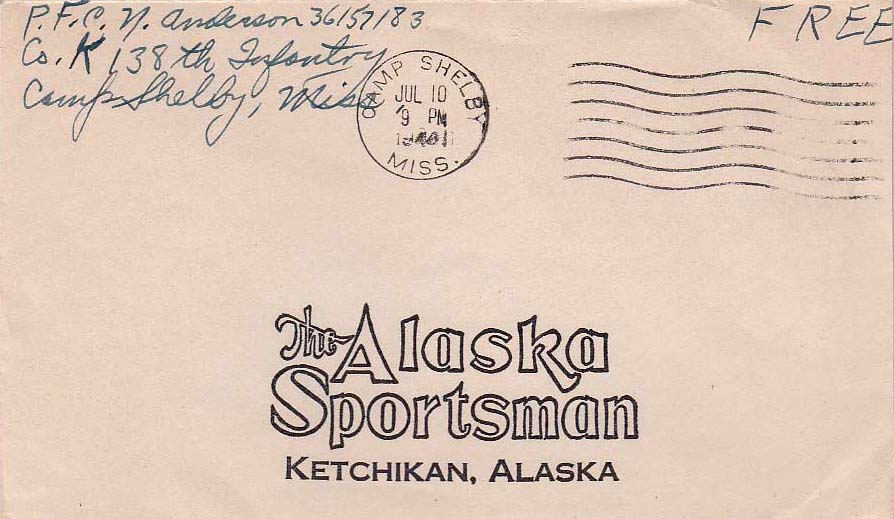 P.F.C. N. Anderson 36157183
Co. K 138th Infantry
Camp Shelby, Miss
FREE
CAMP SHELBY
JUL 10
9 PM
MISS.
The Alaska
Sportsman
KETCHIKAN, ALASKA